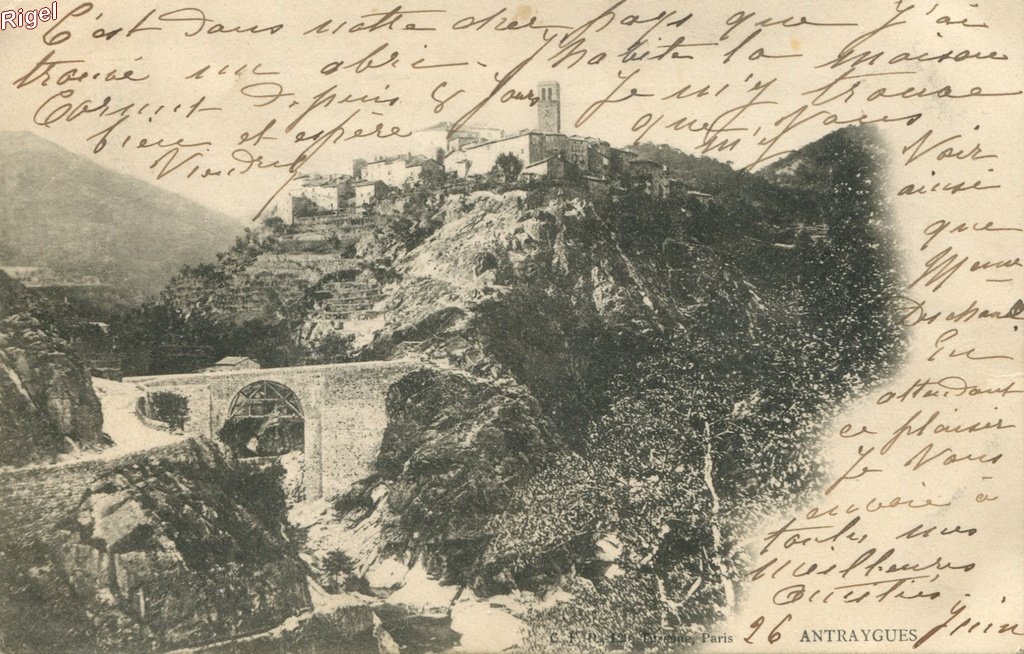 Rigel
C'est dans notre cher pays que j'ai
trouvé un abri. J'habite la maison
Cornut depuis 8 jours Je m'y trouve
bien et espère que Vous
Viendrez m'y
Voir
ainsi
que
Mme
Deschan
En
attendant
ce plaisir
Je Vous
envoie à
toutes mes
meilleures
Amitiés
26 Juin
ANTRAYGUES
Paris